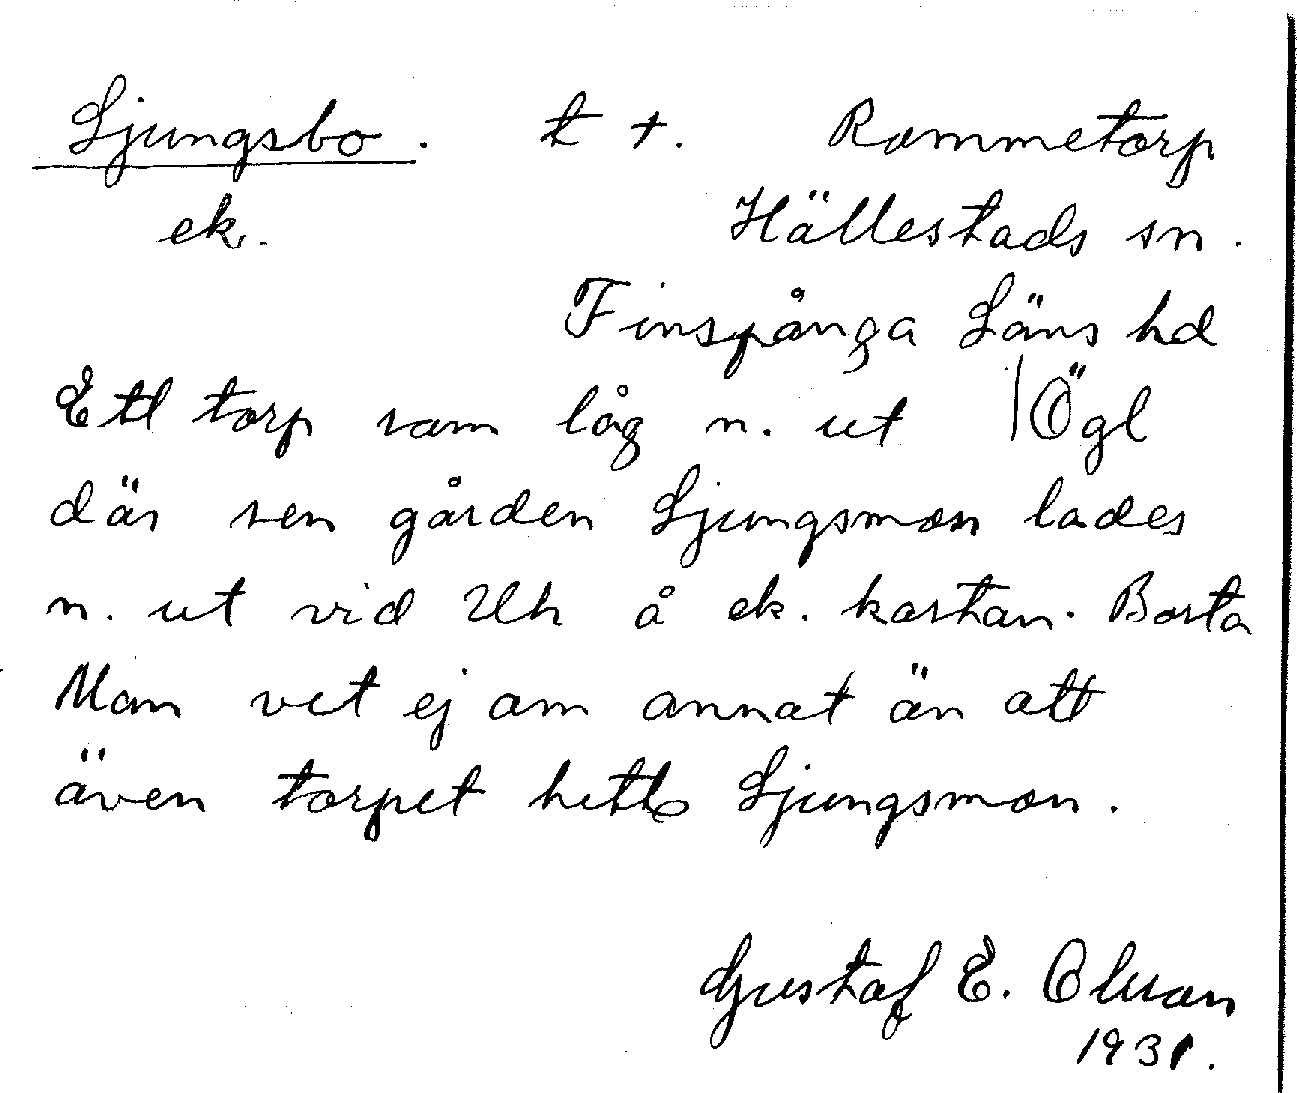 Ljungsbo. t +. Rommetorp
ek. Hällestads sn.
Finspånga Läns hd
Ett torp som låg n. ut | Ögl
där sen gården Ljungsmon lades
n. ut vid Uh å ek. kartan. Borta
Man vet ej om annat än att
även torpet hette Ljungsmon.
Gustaf E. Olsson
1931.